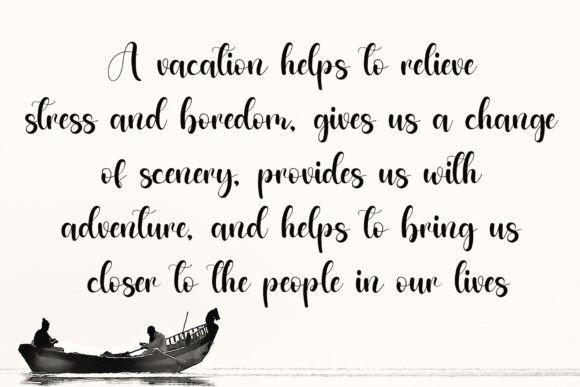 A vacation helps to relieve
stress and boredom, gives us a change
of scenery, provides us with
adventure, and helps to bring us
closer to the people in our lives